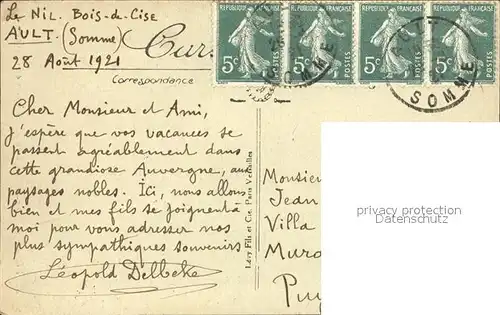 Le Nil. Bois-de-Cise
AULT. (Somme)
28 Août 1921
REPUBLIQUE FRANÇAISE REPUBLIQUE FRANÇAISE REPUBLIQUE FRANÇAISE REPUBLIQUE FRANÇAISE
5c 5c 5c 5c
POSTES POSTES POSTES POSTES
AULT
SOMME
Correspondance
Cher Monsieur et Ami,
j'espère que vos vacances se
passent agréablement dans
cette grandiose Auvergne, aux
paysages nobles. Ici, nous allons
bien et mes fils se joignent à
moi pour vous adresser nos
plus sympathiques souvenirs
Léopold Delbeke
Lévy Fils et Cie, Paris
Monsieu
Jean
Villa
Muro
Puy
privacy protection
Datenschutz